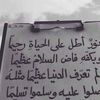 نور أطل على الحياة رحيما
وبكفه فاض السلام عظيما
لم تعرف الدنيا عظيما مثله
صلوا عليه وسلموا تسليما